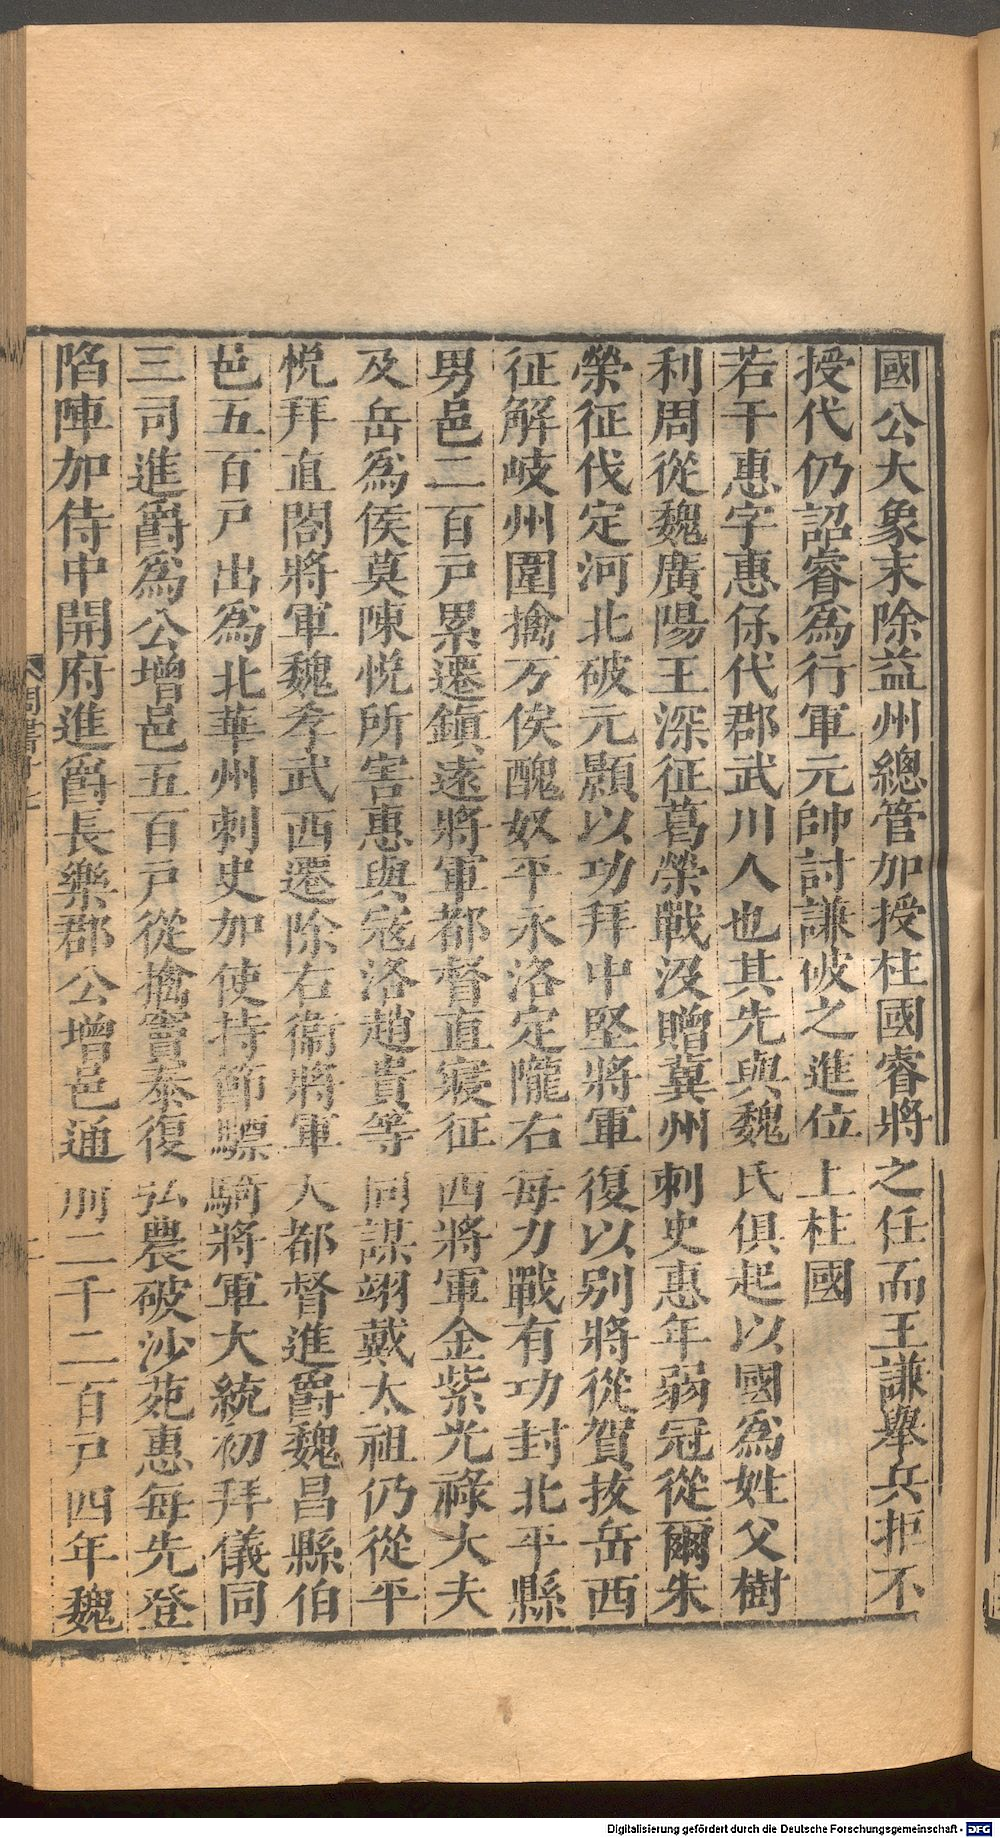 國公大象末除益州總管加授柱國睿將之任而王謙舉兵拒不
授代仍詔睿爲行軍元帥討謙破之進位上柱國
若干惠字惠保代郡武川人也其先與魏氏俱起以國爲姓父樹
利周從魏廣陽王深征葛榮戰沒贈冀州刺史惠年弱冠從爾朱
榮征伐定河北破元顥以功拜中堅將軍復以別將從賀拔岳西
征解岐州圍擒万俟醜奴平永洛定隴右每力戰有功封北平縣
男邑二百戸累遷鎮遠將軍都督直寢征西將軍金紫光祿大夫
及岳爲侯莫陳悅所害惠與寇洛趙貴等同謀翊戴太祖仍從平
悅拜直閤將軍魏孝武西遷除右衞將軍大都督進爵魏昌縣伯
邑五百戸出爲北華州刺史加使持節驃騎將軍大統初拜儀同
三司進爵爲公增邑五百戸從擒竇泰復弘農破沙苑惠每先登
陷陣加侍中開府進爵長樂郡公增邑通前二千二百戸四年魏
周書
Digitalisierung gefördert durch die Deutsche Forschungsgemeinschaft - DFG